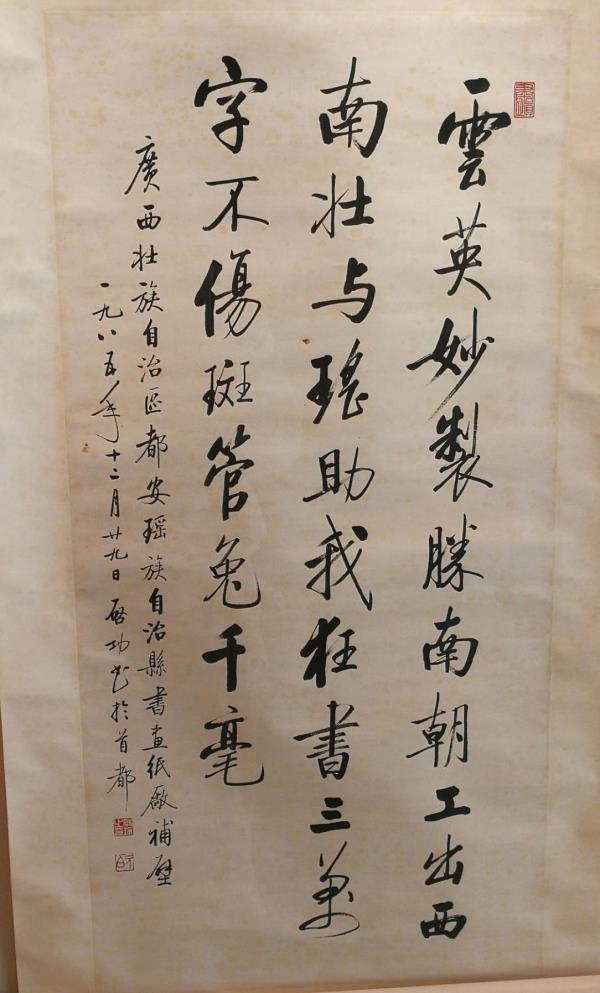 雲英妙製勝南朝工出西
南壮与瑤助我狂書三萬
字不傷斑管兔千毫
廣西壮族自治区都安瑶族自治縣書画纸廠補壁
一九八五年十二月廿九日啓功書於首都